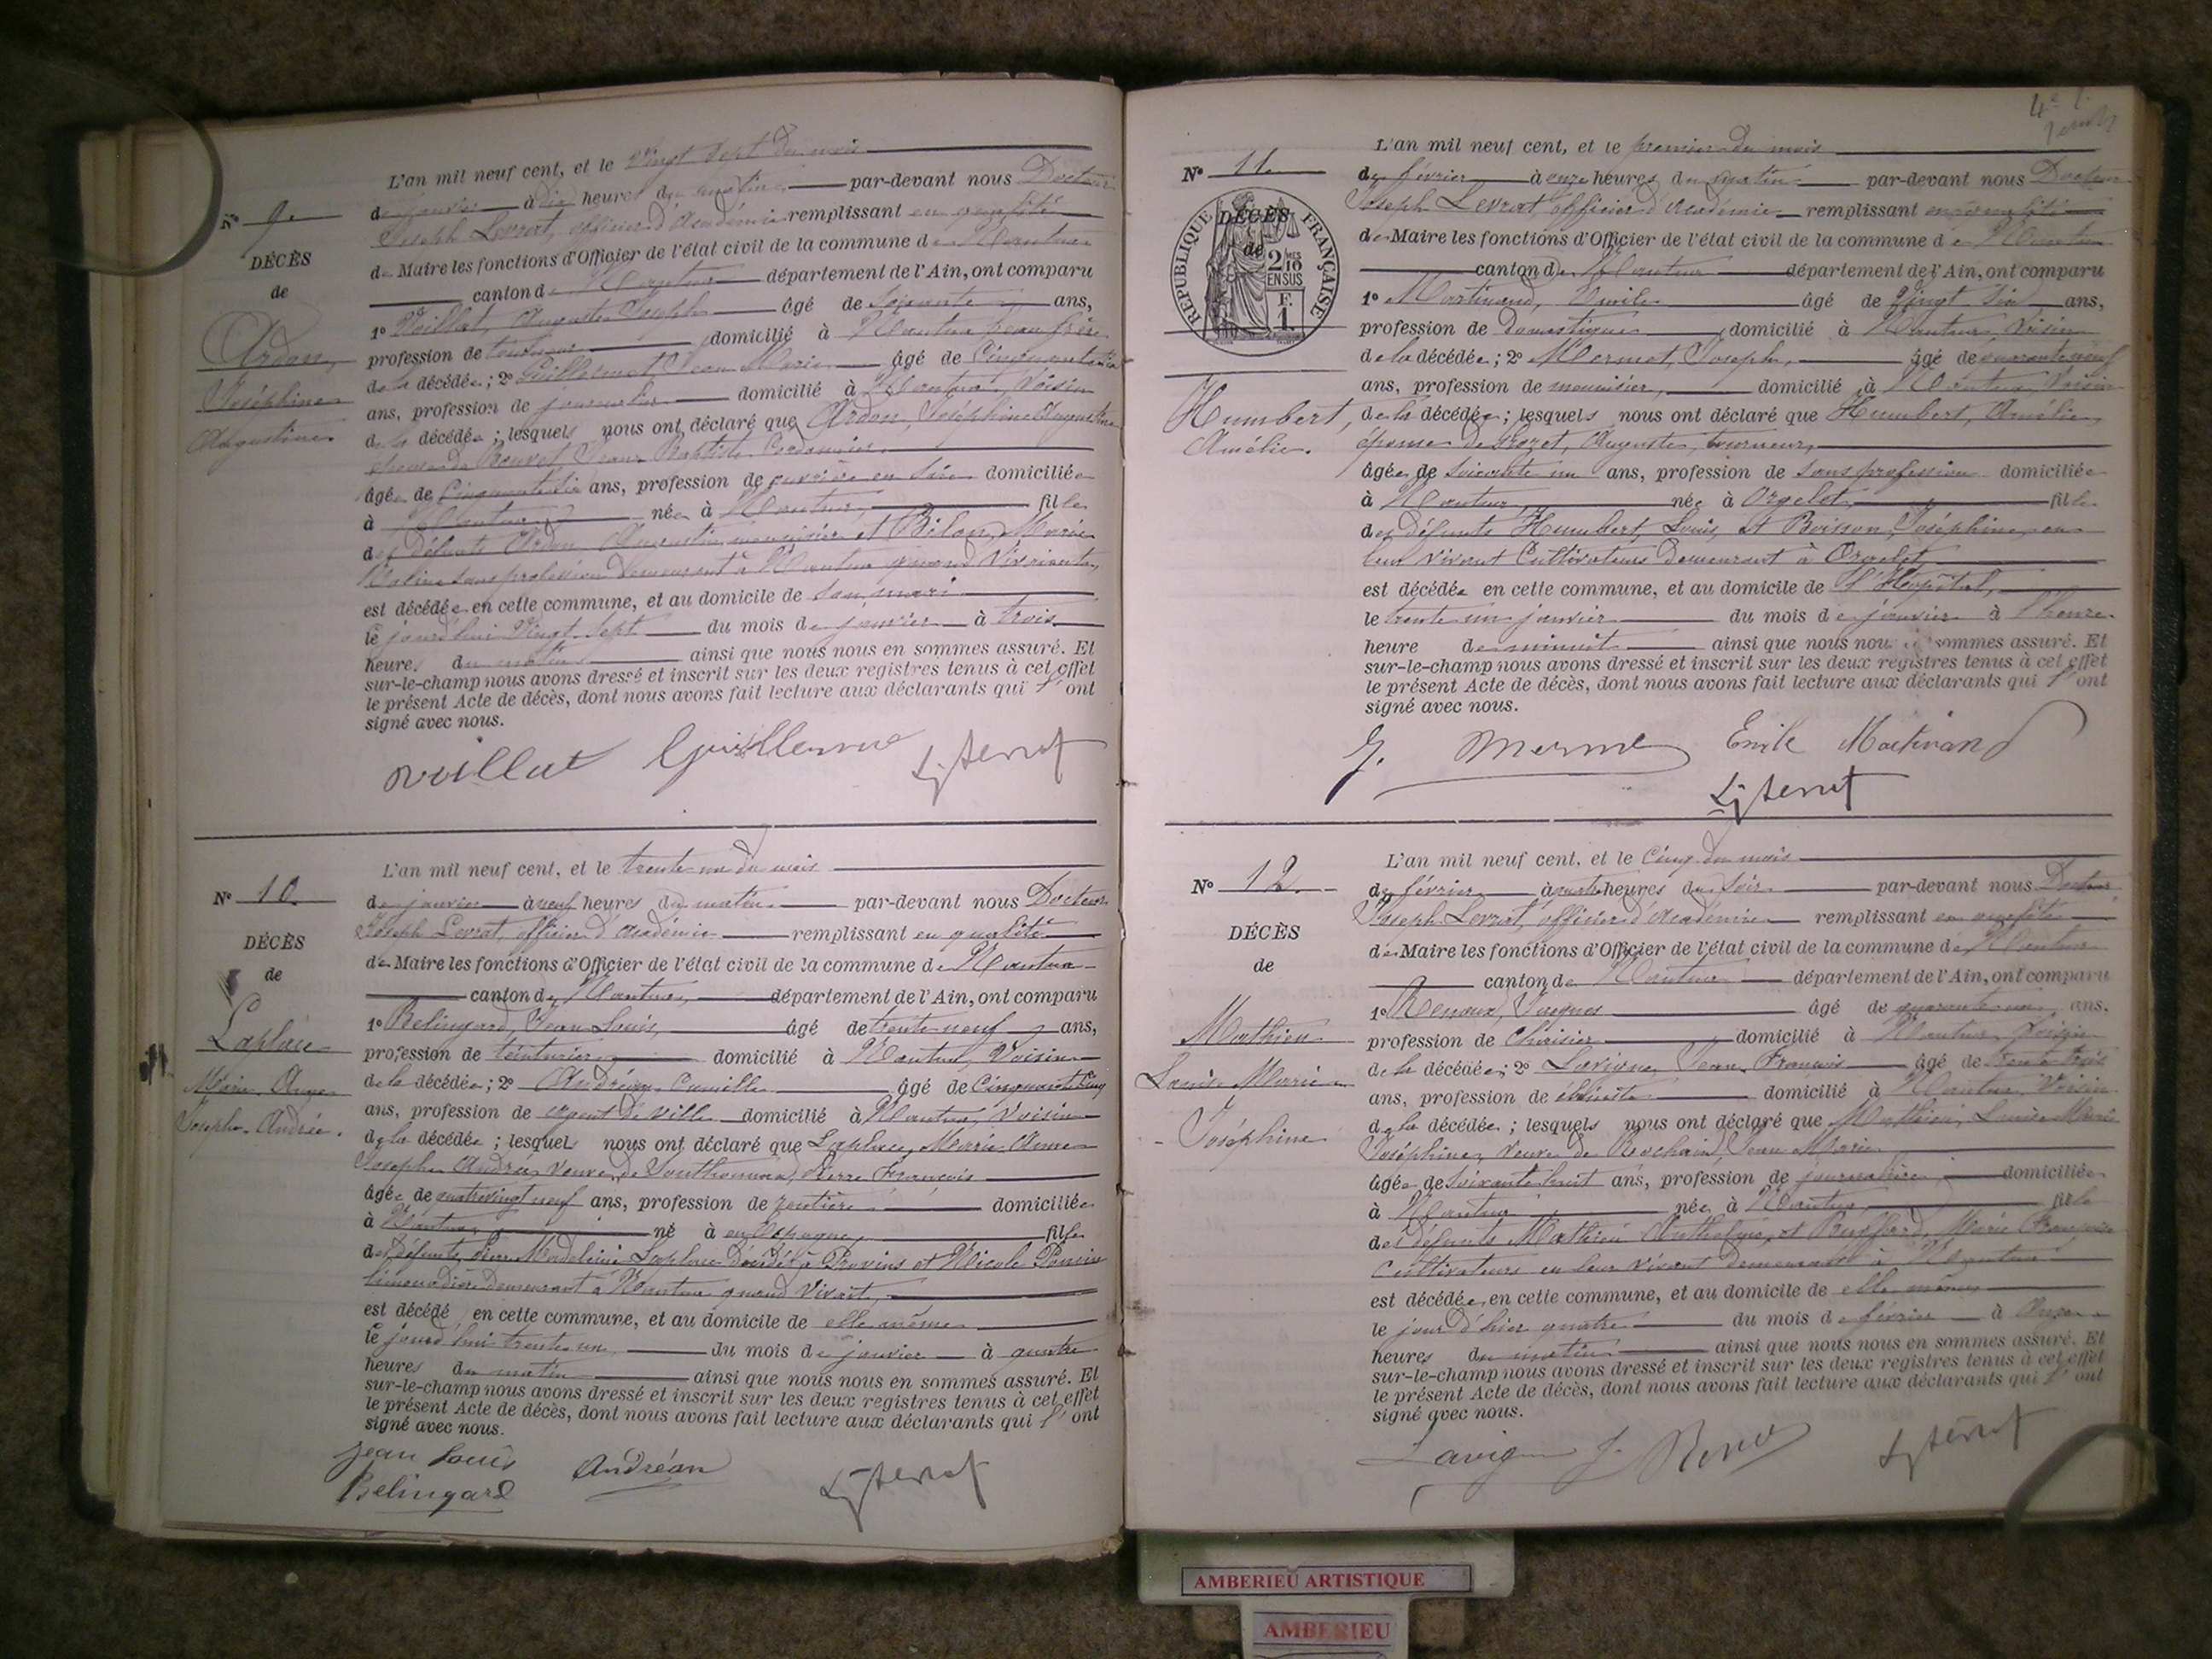 L'an mil neuf cent, et le Vingt Sept du mois
de janvier à dix heures du matin par-devant nous Docteur
Joseph Levrat, officier d'Académie remplissant en qualité
de Maire les fonctions d'Officier de l'état civil de la commune de Nantua
canton de Nantua département de l'Ain, ont comparu
1º Voillat, Auguste Joseph âgé de Soixante ans,
profession de domicilié à Nantua beau frère
de la décédée; 2º Guillermet Jean Marie âgé de
ans, profession de journalier domicilié à Nantua, Voisin
de la décédée; lesquels nous ont déclaré que Ardon, Joséphine Augustine
épouse de Bouvet Jean Baptiste Cordonnier,
âgée de Cinquante six ans, profession de ouvrière en soie domiciliée
à Nantua née à Nantua, fille
des défunts Ardon Augustin menuisier et Marie
sans profession demeurant à Nantua quand Vivaient,
est décédée en cette commune, et au domicile de son mari
le jourd'hui Vingt Sept du mois de janvier à trois
heures du matin ainsi que nous nous en sommes assuré. Et
sur-le-champ nous avons dressé et inscrit sur les deux registres tenus à cet effet
le présent Acte de décès, dont nous avons fait lecture aux déclarants qui l'ont
signé avec nous.
Nº 9.
DÉCÈS
de
Ardon,
Joséphine
Augustine
Voillat
L'an mil neuf cent, et le trente-un du mois
Nº 10
de janvier à neuf heures du matin par-devant nous Docteur
Joseph Levrat, officier d'Académie remplissant en qualité
de Maire les fonctions d'Officier de l'état civil de la commune de Nantua
canton de Nantua, département de l'Ain, ont comparu
1º Belingard, Jean Louis, âgé de trente neuf ans,
profession de teinturier domicilié à Nantua, Voisin
de la décédée; 2º Andréan Camille âgé de Cinquante Cinq
ans, profession de agent de ville domicilié à Nantua, Voisin
de la décédée; lesquels nous ont déclaré que Laplace, Marie Anne
Joseph Andrée veuve de Pierre François
âgée de quatre vingt neuf ans, profession de rentière domiciliée
à Nantua né à en Espagne, fille
des défunts Madeleine Laplace décédé à Provins et Nicole
limonadier demeurant à Nantua quand Vivait,
est décédé en cette commune, et au domicile de elle même
le jourd'hui trente un du mois de janvier à quatre
heures du matin ainsi que nous nous en sommes assuré. Et
sur-le-champ nous avons dressé et inscrit sur les deux registres tenus à cet effet
le présent Acte de décès, dont nous avons fait lecture aux déclarants qui l'ont
signé avec nous.
DÉCÈS
de
Laplace
Marie Anne
Joseph Andrée.
Jean Louis
Belingard
Andréan
L'an mil neuf cent, et le premier du mois
Nº 11.
de février à onze heures du matin par-devant nous Docteur
Joseph Levrat, officier d'Académie remplissant en qualité
de Maire les fonctions d'Officier de l'état civil de la commune de Nantua
canton de Nantua département de l'Ain, ont comparu
1º Martinand, Emile âgé de Vingt six ans,
profession de domestique, domicilié à Nantua Voisin
de la décédée; 2º Mermet, Joseph, âgé de quarante neuf
ans, profession de menuisier, domicilié à Nantua, Voisin
de la décédée; lesquels nous ont déclaré que Humbert, Amélie,
épouse de Auguste, tourneur,
âgée de Soixante un ans, profession de sans profession domiciliée
à Nantua, née à Orgelet, fille
des défunts Humbert, Louis, et Boisson, Joséphine, en
leur vivant Cultivateurs demeurant à Orgelet
est décédée en cette commune, et au domicile de l'Hôpital,
le trente un janvier du mois de janvier à l'heure
heure de minuit ainsi que nous nous sommes assuré. Et
sur-le-champ nous avons dressé et inscrit sur les deux registres tenus à cet effet
le présent Acte de décès, dont nous avons fait lecture aux déclarants qui l'ont
signé avec nous.
DÉCÈS
de
RÉPUBLIQUE FRANÇAISE
2 MES 10
EN SUS
F.
1.
Humbert,
Amélie.
J. Mermet
Emile Martinand
L'an mil neuf cent, et le Cinq du mois
Nº 12.
de février à quatre heures du Soir par-devant nous Docteur
Joseph Levrat, officier d'Académie remplissant en qualité
de Maire les fonctions d'Officier de l'état civil de la commune de Nantua
canton de Nantua département de l'Ain, ont comparu
1º Renoux, Jacques âgé de quarante un ans,
profession de domicilié à Nantua Voisin
de la décédée; 2º Lavigne, Jean François âgé de trente trois
ans, profession de ébéniste domicilié à Nantua Voisin
de la décédée; lesquels nous ont déclaré que Mathieu, Louise Marie
Joséphine, Veuve de Jean Marie
âgée de Soixante huit ans, profession de journalière domiciliée
à Nantua née à Nantua, fille
des défunts Mathieu Anthelme, et Marie Françoise
Cultivateurs en leur vivant demeurant à Nantua
est décédée en cette commune, et au domicile de elle même
le jour d'hier quatre du mois de février à Onze
heures du matin ainsi que nous nous en sommes assuré. Et
sur-le-champ nous avons dressé et inscrit sur les deux registres tenus à cet effet
le présent Acte de décès, dont nous avons fait lecture aux déclarants qui l'ont
signé avec nous.
DÉCÈS
de
Mathieu
Louise Marie
Joséphine
AMBERIEU ARTISTIQUE
AMBERIEU